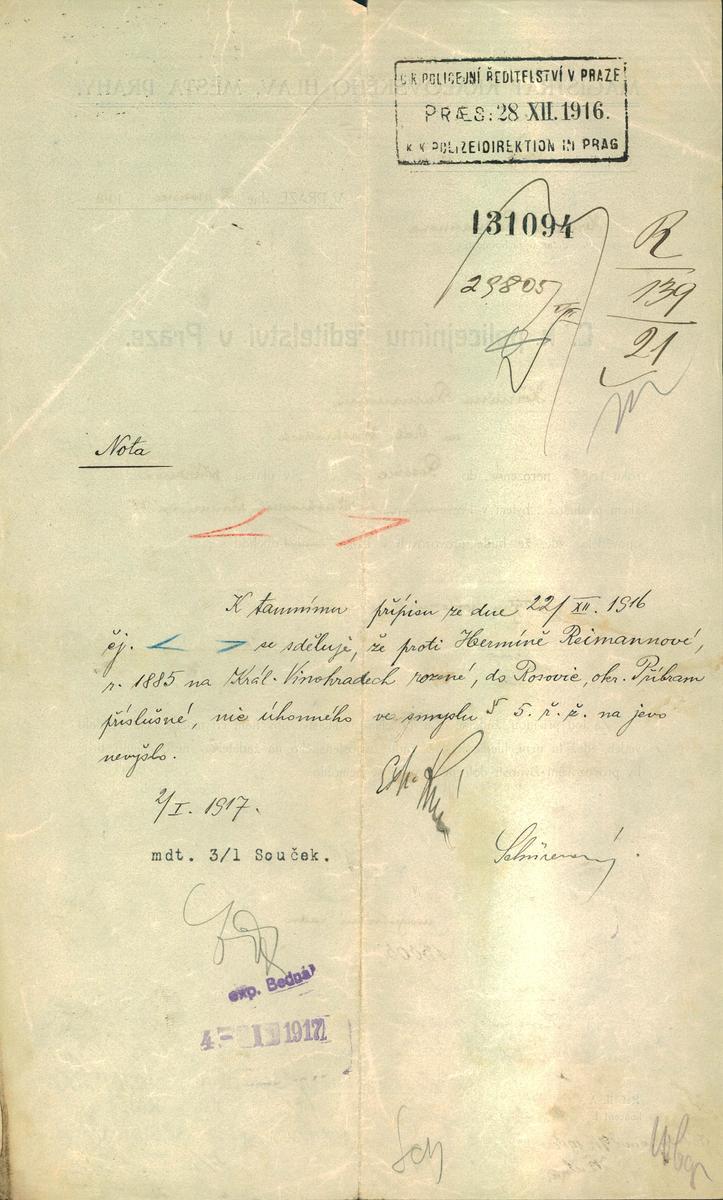 C.K. POLICEJNÍ ŘEDITELSTVÍ V PRAZE
PRÆS: 28 XII. 1916.
K.K. POLIZEIDIREKTION IN PRAG
131094
29805
R
139
21
Nota
K tamnímu přípisu ze dne 22/XII. 1916
čj. se sděluje, že proti Hermíně Reimannové,
r. 1885 na Král. Vinohradech rozené, do Rosovic, okr. Příbram
příslušné, nic úhonného ve smyslu § 5. ř. ž. na jevo
nevyšlo.
2/I. 1917.
mdt. 3/1 Souček.
exp. Bednář
4 - I 1917
Sch